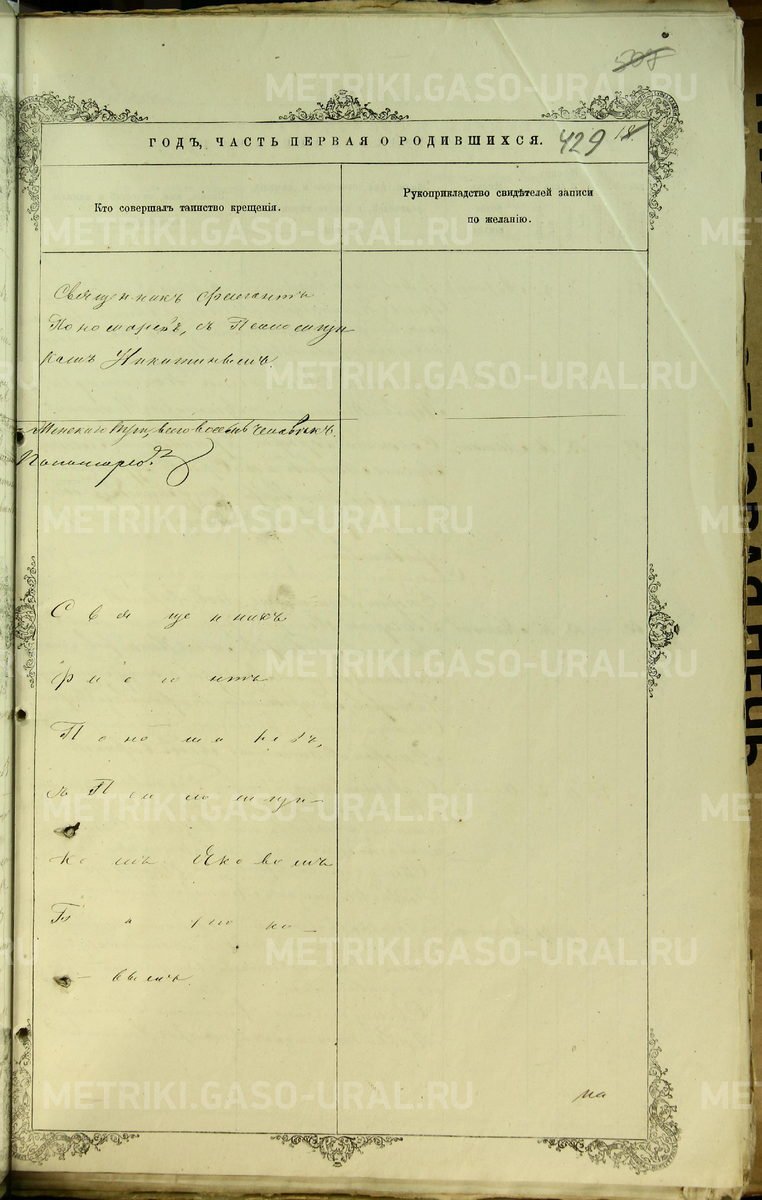 507
ГОДЪ, ЧАСТЬ ПЕРВАЯ О РОДИВШИХСЯ. 429 18
Кто совершалъ таинство крещенія.
Рукоприкладство свидѣтелей записи
по желанію.
Священникъ
Пономаревъ, съ Псаломщи
комъ Никитинымъ.
всего восемь человѣкъ.
Священникъ
Пономаревъ,
съ Псаломщи-
комъ Яковомъ
-вымъ.
на
METRIKI.GASO-URAL.RU